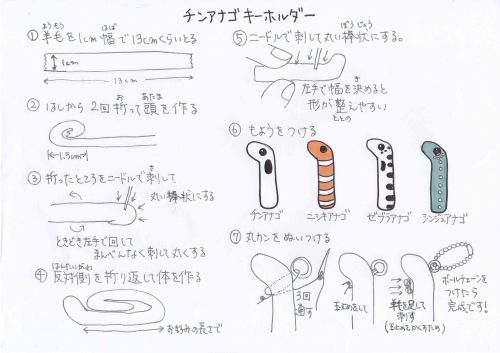 チンアナゴキーホルダー
① 羊毛を1cm幅で13cmくらいとる
ようもう
はば
1cm
13cm
② はしから2回折って頭を作る
お
あたま
1.5cm
③ 折ったところをニードルで刺して
さ
丸い棒状にする
ときどき左手で回して
まんべんなく刺して丸くする
④ 反対側を折り返して体を作る
はんたいがわ
お好みの長さで
⑤ ニードルで刺して丸い棒状にする。
ぼうじょう
左手で幅を決めると
き
形が整えやすい
ととの
⑥ もようをつける
チンアナゴ
ニシキアナゴ
ゼブラアナゴ
シンジュアナゴ
⑦ 丸カンをぬいつける
3回
通す
玉止めをして
羊毛を足して
刺す
(玉止めをかくすため)
ボールチェーンを
つけたら
完成です!